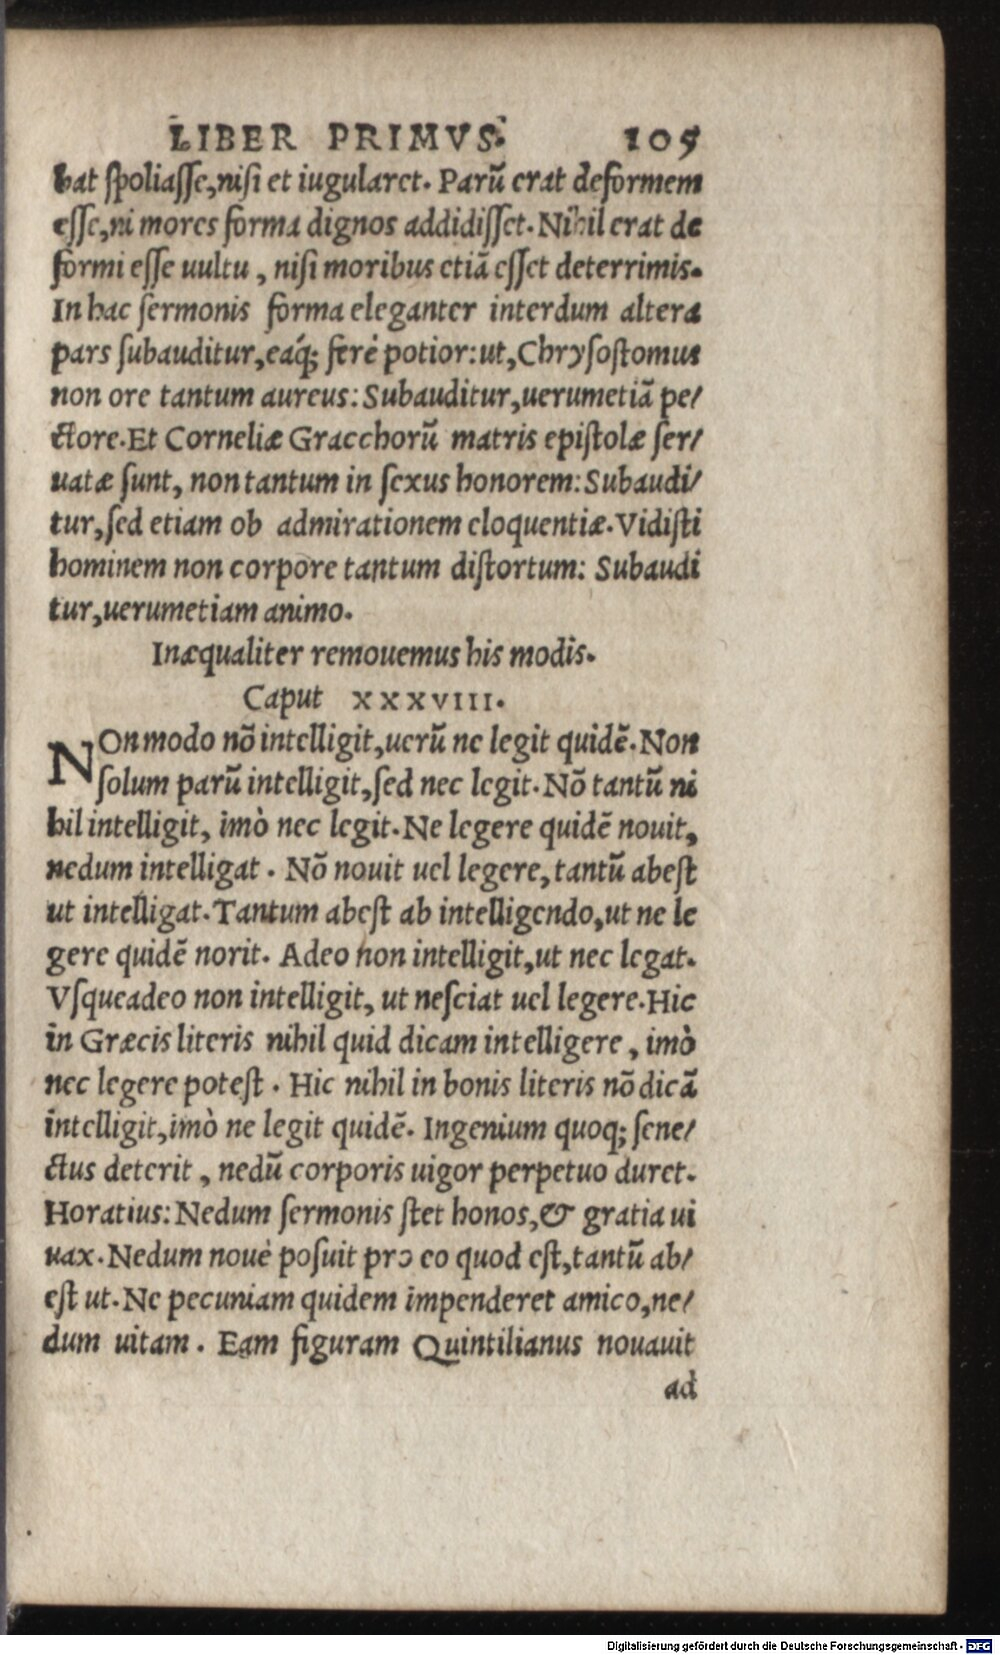 LIBER PRIMVS. 105
bat spoliasse, nisi et iugularet. Parũ erat deformem
esse, ni mores forma dignos addidisset. Nihil erat de
formi esse uultu, nisi moribus etiã esset deterrimis.
In hac sermonis forma eleganter interdum altera
pars subauditur, eaq́; ferè potior: ut, Chrysostomus
non ore tantum aureus: Subauditur, uerumetiã pe/
ctore. Et Corneliæ Gracchorũ matris epistolæ ser/
uatæ sunt, non tantum in sexus honorem: Subaudi/
tur, sed etiam ob admirationem eloquentiæ. Vidisti
hominem non corpore tantum distortum: Subaudi
tur, uerumetiam animo.
Inæqualiter remouemus his modis.
Caput XXXVIII.
NOn modo nõ intelligit, uerũ ne legit quidẽ. Non
solum parũ intelligit, sed nec legit. Nõ tantũ ni
hil intelligit, imò nec legit. Ne legere quidẽ nouit,
nedum intelligat. Nõ nouit uel legere, tantũ abest
ut intelligat. Tantum abest ab intelligendo, ut ne le
gere quidẽ norit. Adeo non intelligit, ut nec legat.
Vsqueadeo non intelligit, ut nesciat uel legere. Hic
in Græcis literis nihil quid dicam intelligere, imò
nec legere potest. Hic nihil in bonis literis nõ dicã
intelligit, imò ne legit quidẽ. Ingenium quoq; sene/
ctus deterit, nedũ corporis uigor perpetuo duret.
Horatius: Nedum sermonis stet honos, & gratia ui
uax. Nedum nouè posuit pro eo quod est, tantũ ab/
est ut. Ne pecuniam quidem impenderet amico, ne/
dum uitam. Eam figuram Quintilianus nouauit
ad
Digitalisierung gefördert durch die Deutsche Forschungsgemeinschaft - DFG